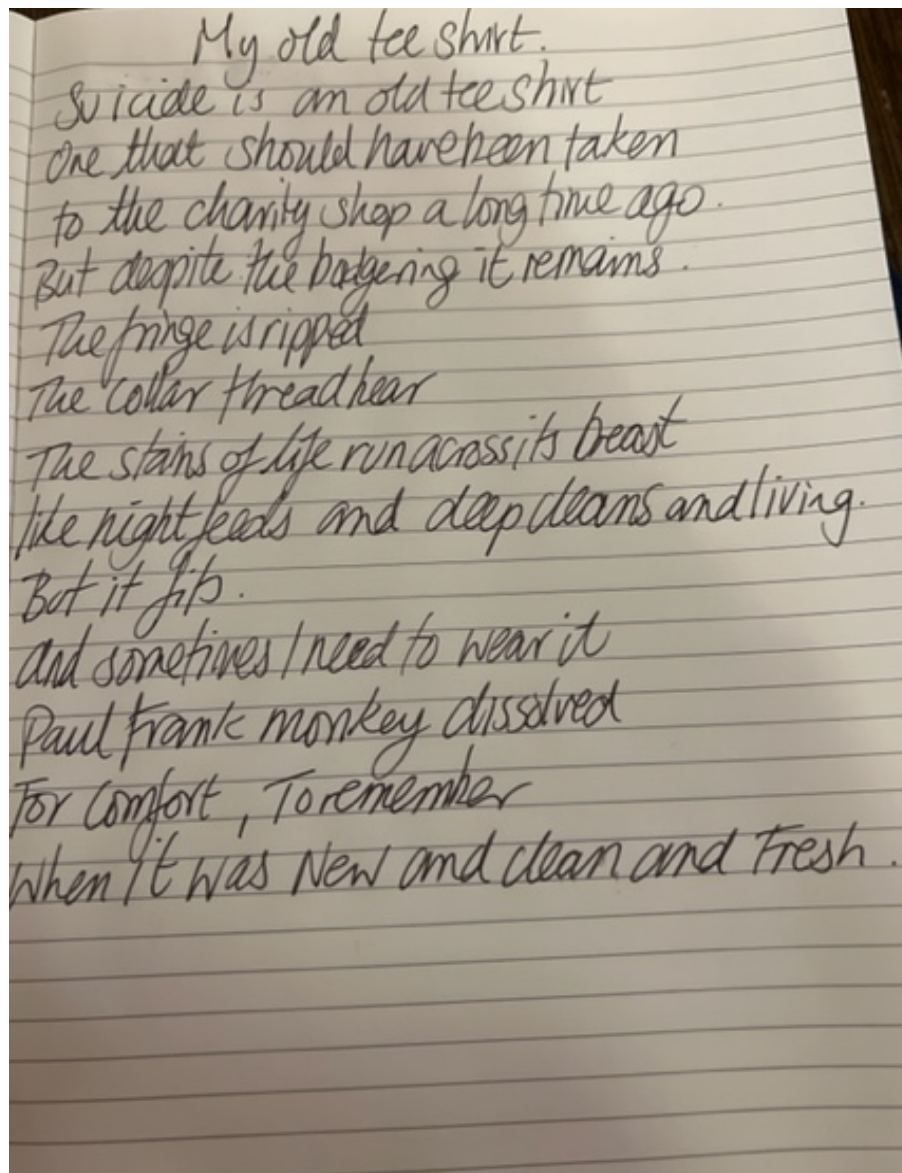 My old tee shirt.
Suicide is an old tee shirt
One that should have been taken
to the charity shop a long time ago.
But despite the badgering it remains.
The fringe is ripped
The collar threadbear
The stains of life run across its breast
like night feeds and deep cleans and living.
But it fits.
and sometimes I need to wear it
Paul Frank monkey dissolved
For comfort, To remember
When it was New and clean and Fresh.